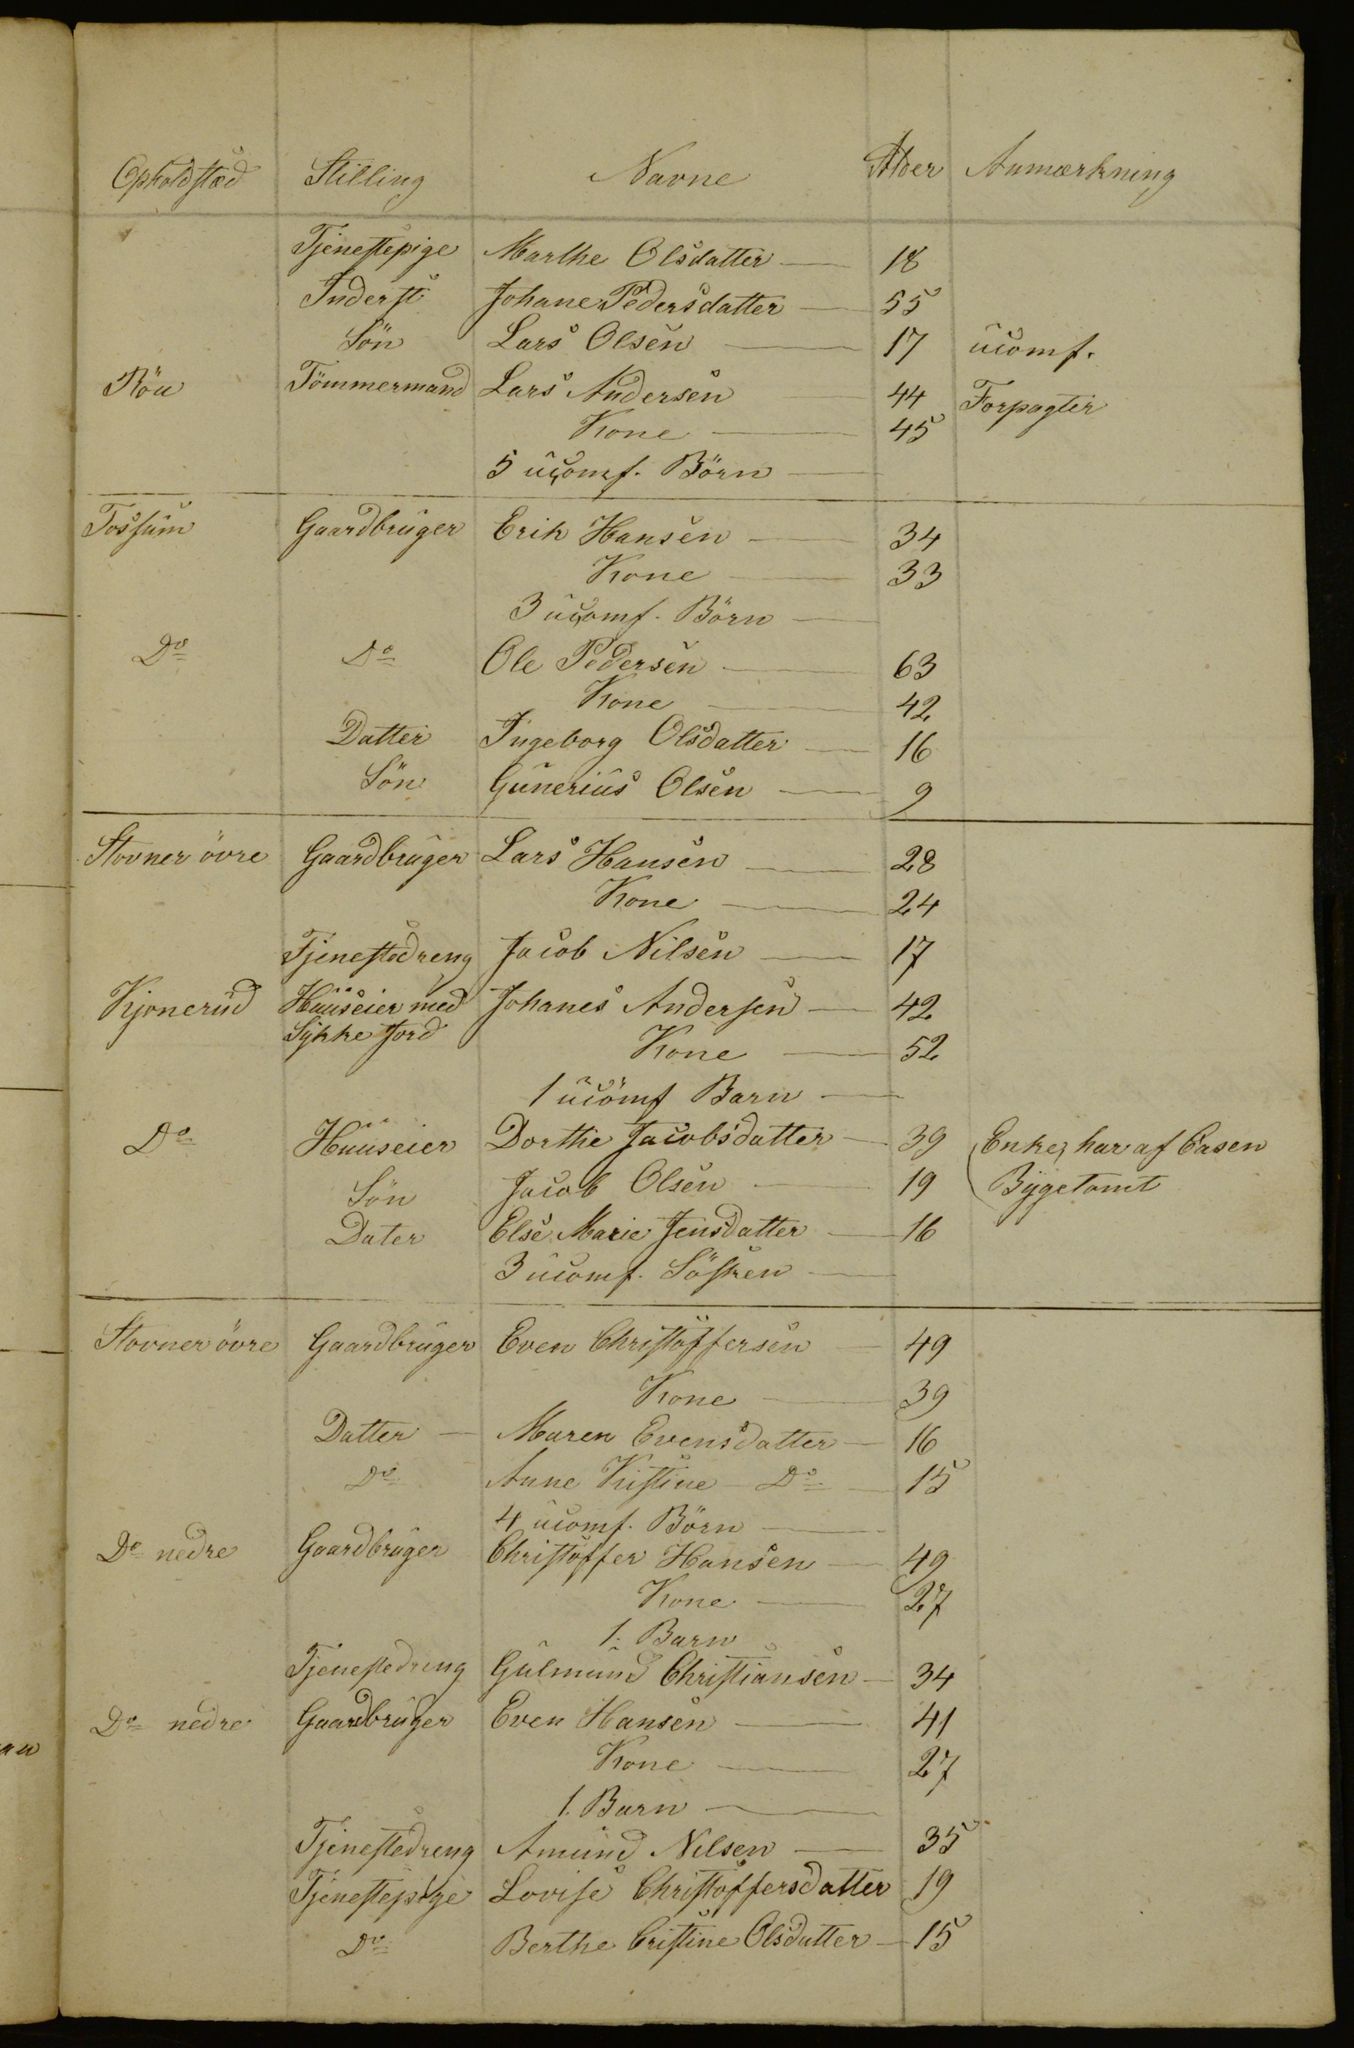 Opholdstæd Stilling Navne Alder Anmærkning
Tjenestepige Marthe Olsdatter — 18
Inderst Johane Pedersdatter — 55
Sön Lars Olsen — 17 ucomf.
Röa Tömmermand Lars Andersen 44 Forpagter
Kone — 45
5 ucomf. Börn —
Fossum Gaardbruger Erik Hansen — 34
Kone — 33
3 ucomf. Börn —
Do Do Ole Pedersen — 63
Kone — 42
Datter Ingeborg Olsdatter — 16
Sön Gunerius Olsen — 9
Stovner övre Gaardbruger Lars Hansen — 28
Kone — 24
Tjenestedreng Jacob Nilsen — 17
Kjonerud Huuseier med Johanes Andersen — 42
Sykke Jord Kone — 52
1 ucomf Barn —
Do Huuseier Dorthe Jacobsdatter — 39 Enke, har af
Sön Jacob Olsen — 19 Bygetomt
Dater Else Marie Jensdatter — 16
3 ucomf. Sösken —
Stovner övre Gaardbruger Even Christoffersen — 49
Kone — 39
Datter — Maren Evensdatter — 16
Do Anne Kistine — Do — 15
4 ucomf. Börn —
Do nedre Gaardbruger Christoffer Hansen — 49
Kone — 27
1. Barn
Tjenestedreng Gulmund Christiansen — 34
Do nedre Gaardbruger Even Hansen — 41
Kone — 27
1. Barn —
Tjenestedreng Amund Nilsen — 35
Tjenestepige Lovise Christoffersdatter 19
Do Berthe Cristine Olsdatter — 15